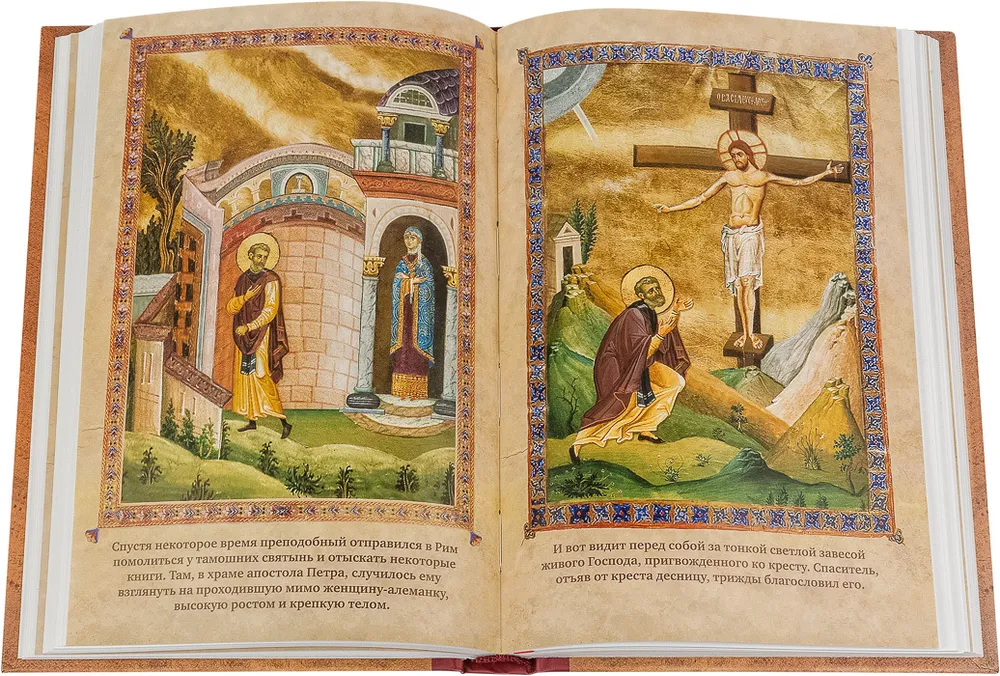 Спустя некоторое время преподобный отправился в Рим
помолиться у тамошних святынь и отыскать некоторые
книги. Там, в храме апостола Петра, случилось ему
взглянуть на проходившую мимо женщину-алеманку,
высокую ростом и крепкую телом.
И вот видит перед собой за тонкой светлой завесой
живого Господа, пригвожденного ко кресту. Спаситель,
отъяв от креста десницу, трижды благословил его.